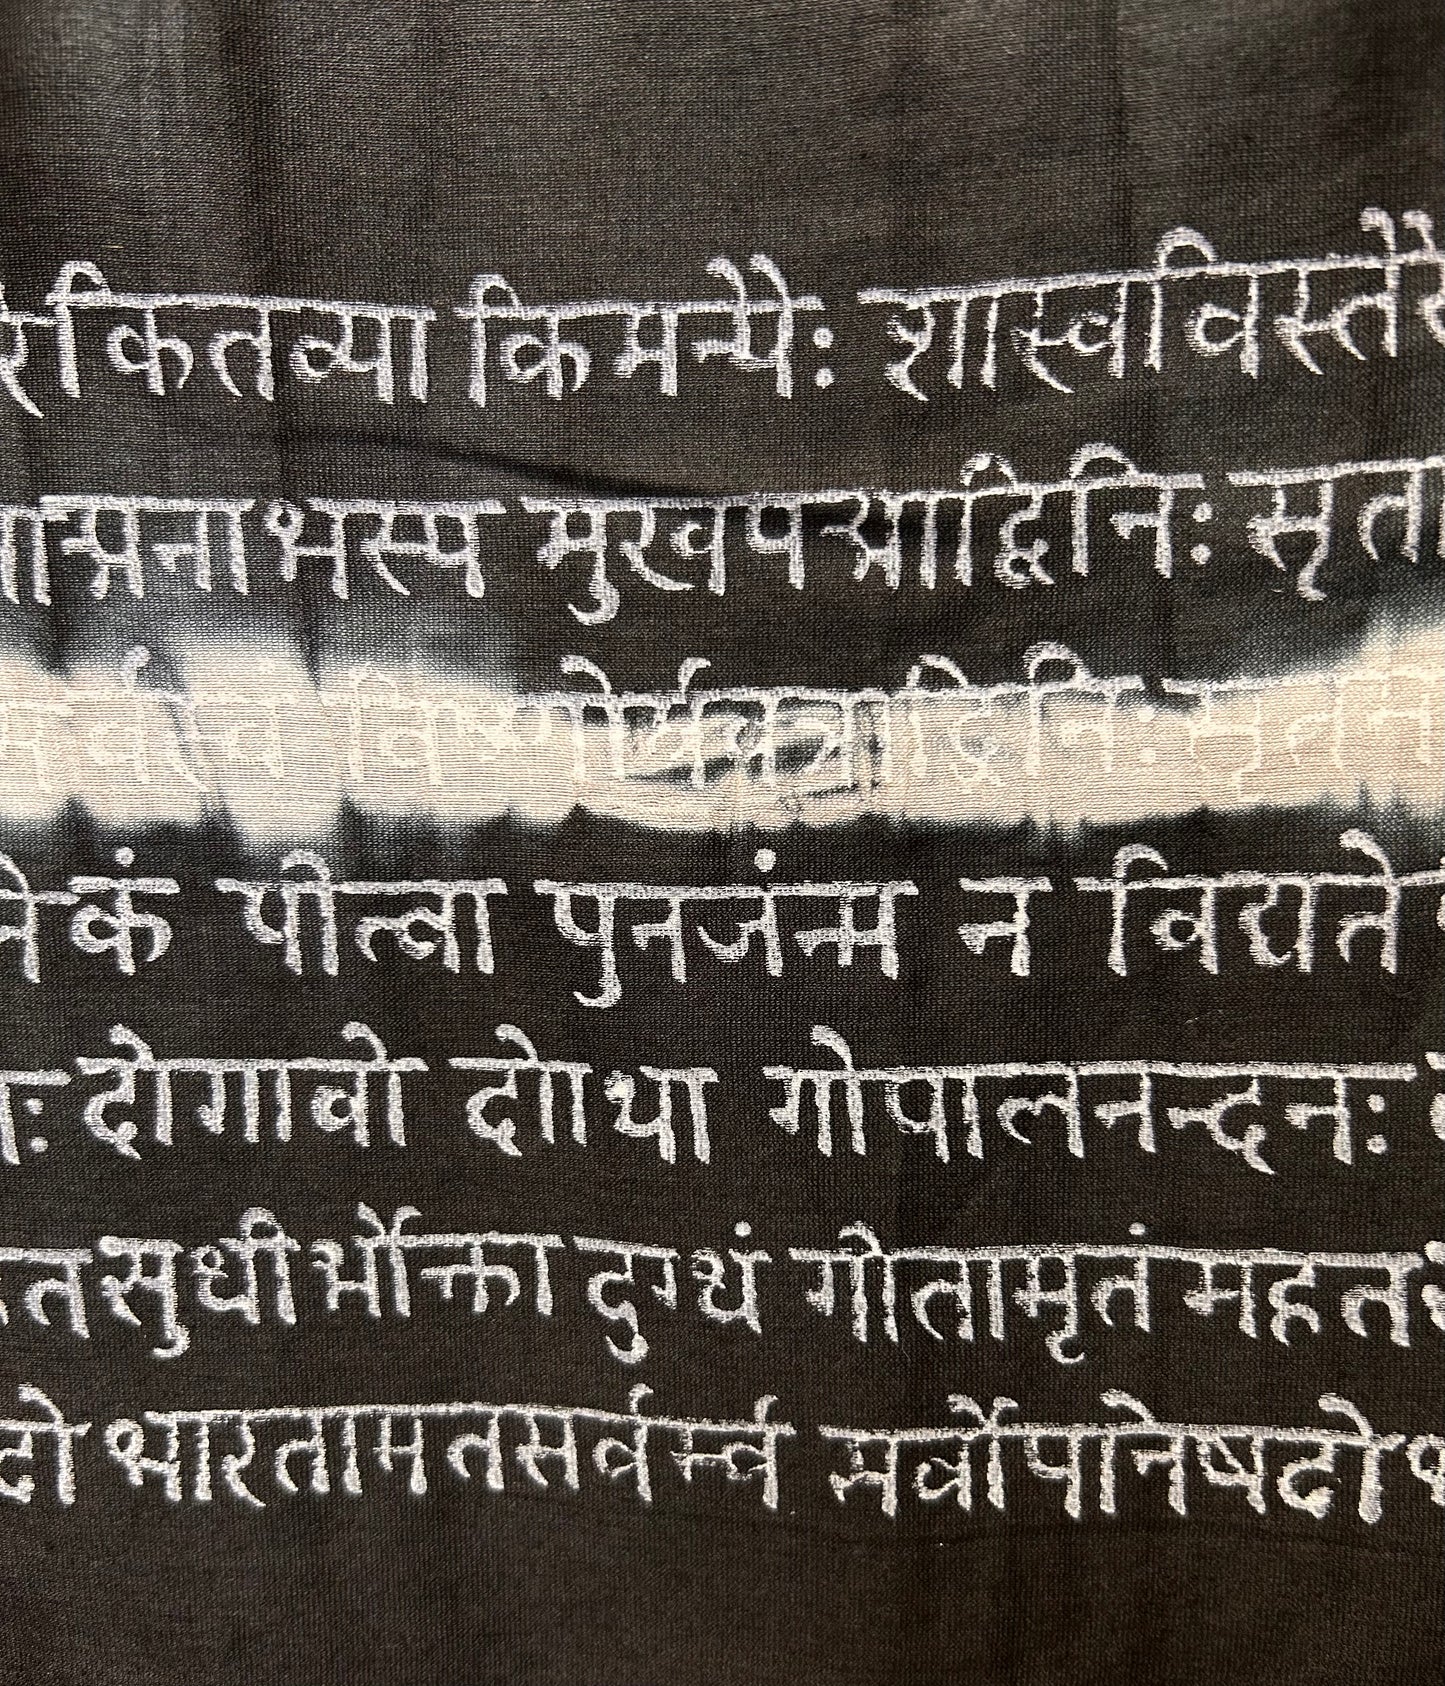 रकितव्या किमन्यैः शास्वविस्तेरै
ाद्मनाभस्प मुखपद्माद्विनिः सृता
र्व विष्णोर्वक्त्राद्विनिः सृत
ेकं पीत्वा पुनजंन्म न विद्यते
ः दोगावो दोाथा गोपालनन्दनः
तसुधीर्भोक्ता दुग्धं गीतामृतं महत
दो भारतामतसर्वर्म्व मर्वोपानेषदो